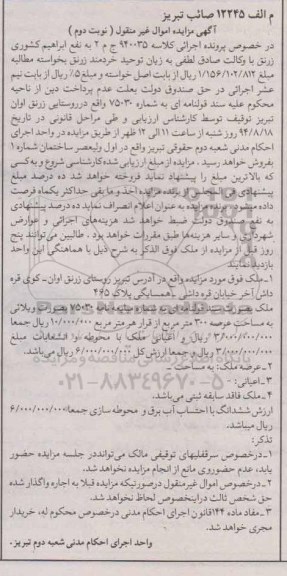 م الف ۱۲۲۴۵ صائب تبریز
آگهی مزایده اموال غیر منقول ( نوبت دوم )
در خصوص پرونده اجرائی کلاسه ۹۴۰۰۳۵ ج م ۲ به نفع ابراهیم کشوری
زرنق با وکالت صادق لطفی به زیان توحید خردمند زرنق بخواسته مطالبه
مبلغ ۱/۱۵۶/۱۰۲/۸۱۲ ریال از بابت اصل خواسته و مبلغ ۵٪ ریال از بابت نیم
عشر اجرائی در حق صندوق دولت بعلت عدم پرداخت دین از ناحیه
محکوم علیه سند قولنامه ای به شماره ۷۵۰۳۰ واقع در روستایی زرنق اوان
تبریز توقیف توسط کارشناس ارزیابی و طی مراحل قانونی در تاریخ
۹۴/۸/۱۸ روز شنبه از ساعت ۱۱ الی ۱۲ ظهر از طریق مزایده در واحد اجرای
احکام مدنی شعبه دوم حقوقی تبریز واقع در اول ولیعصر ساختمان شماره ۱
بفروش خواهد رسید . مزایده از مبلغ ارزیابی شده کارشناسی شروع و به کسی
که بالاترین مبلغ را پیشنهاد نماید فروخته خواهد شد ده درصد مبلغ
پیشنهادی فی المجلس از برنده مزایده اخذ و ما بقی حداکثر یکماه فرصت
داده میشود برنده مزایده به عنوان اعلام انصراف نماید ده درصد پیشنهادی
به نفع صندوق دولت ضبط خواهد شد هزینه‌های اجرائی و عوارض
شهرداری و سایر هزینه‌ها طبق مقررات خواهد بود . طالبین می‌توانند پنج
روز قبل از مزایده از ملک فوق الذکر به شرح ذیل با هماهنگی این واحد
بازدید نمایند
۱_ملک فوق مورد مزایده واقع در آدرس تبریز روستای زرنق اوان_کوی قره
داش آخر خیابان قره داشی _ همسایگی پلاک ۴۶۵
ملک به شماره ۷۵۰۳۰ بصورت ویلائی
به مساحت عرصه ۳۰۰ متر مربع از قرار هر متر مربع ۱۰/۰۰۰/۰۰۰ ریال جمعا
۳/۰۰۰/۰۰۰/۰۰۰ ریال و اعیانی ملک با محوطه و انشعابات مبلغ
۳/۰۰۰/۰۰۰/۰۰۰ ریال و جمعا ارزش کل ۶/۰۰۰/۰۰۰/۰۰۰ ریال می‌باشد.
۲_عرصه ملک: به مساحت _
۳_اعیانی: _
۴_ملک فاقد سابقه ثبتی می‌باشد.
ارزش ششدانگ با احتساب آب برق و محوطه سازی جمعا ۶/۰۰۰/۰۰۰/۰۰۰
ریال میباشد.
تذکر:
۱_درخصوص سرقفلیهای توقیفی مالک می‌تواند در جلسه مزایده حضور
یابد، عدم حضور وی مانع از انجام مزایده نخواهد شد.
۲_درخصوص اموال غیر منقول درصورتیکه مزایده قبلا به اجاره واگذار شده
حق شخص ثالث دراینخصوص لحاظ نخواهد شد.
۳_مفاد ماده ۱۴۴ قانون اجرای احکام مدنی درخصوص محکوم له، خریدار
مجری خواهد شد.
واحد اجرای احکام مدنی شعبه دوم تبریز.
پایگاه اطلاع رسانی مناقصه و مزایده
۰۲۱-۸۸۳۴۹۶۷۰-۵